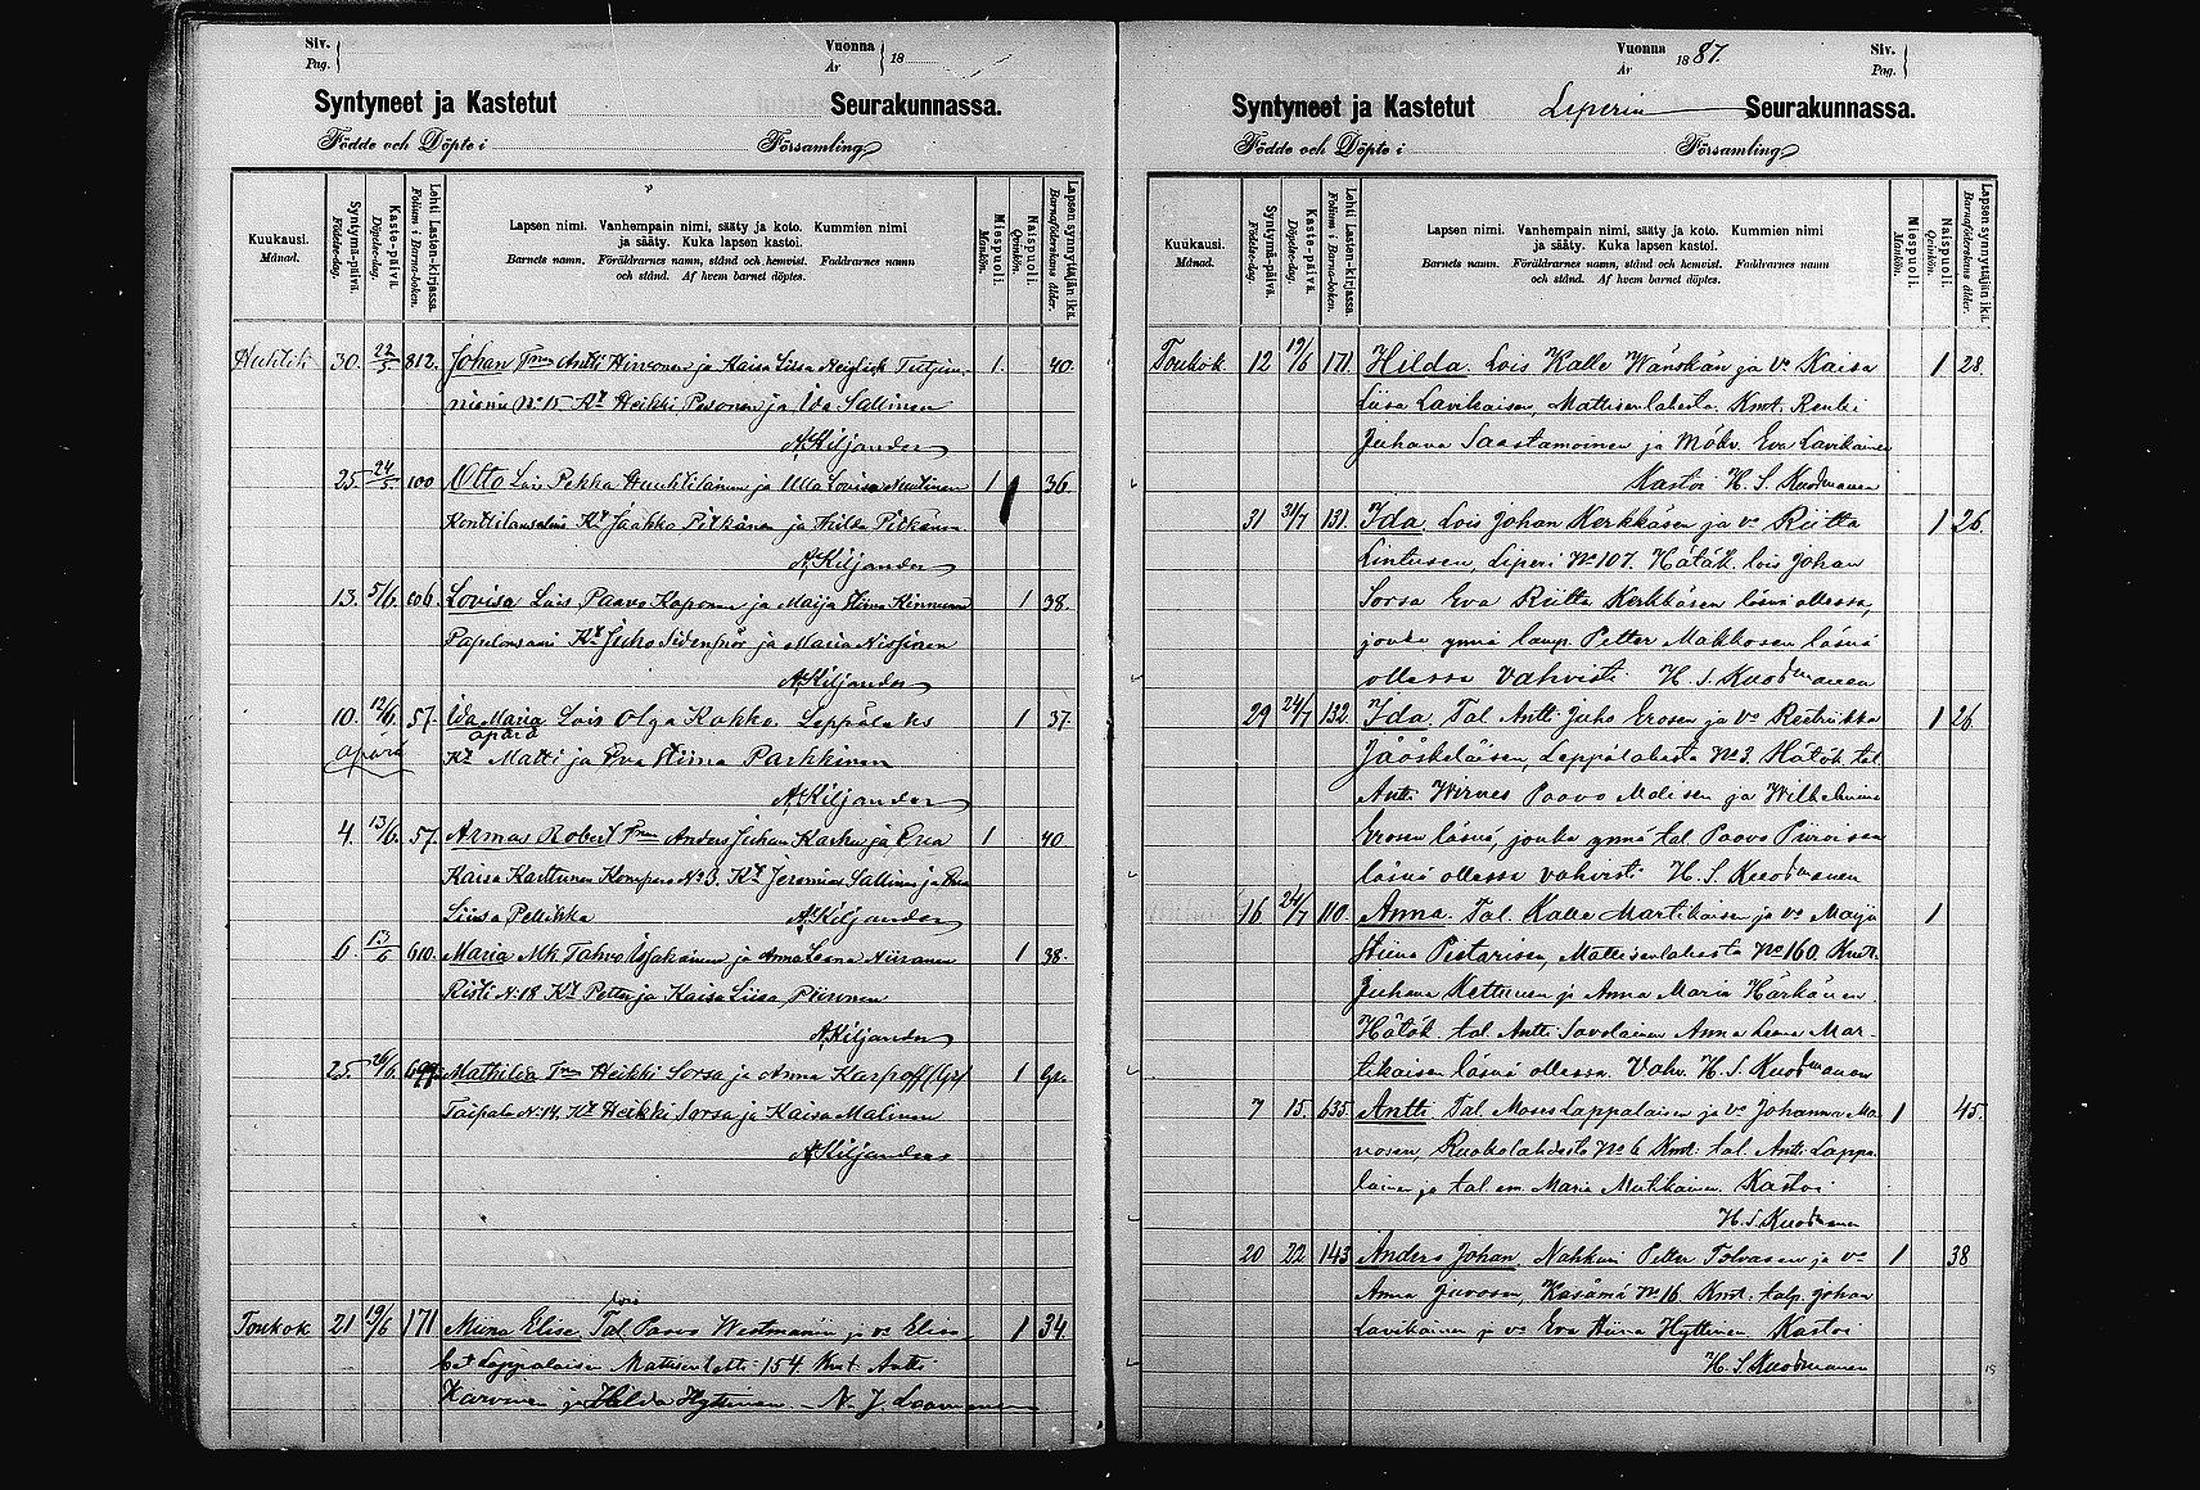 Siv.
Pag.
Vuonna
År 18
Syntyneet ja Kastetut Seurakunnassa.
Födde och Döpte i Församling
Kuukausi.
Månad.
Syntymä-päivä.
Födelse-dag.
Kaste-päivä.
Döpelse-dag.
Lehti Lasten-kirjassa.
Folium i Barna-boken.
Lapsen nimi. Vanhempain nimi, sääty ja koto. Kummien nimi
ja sääty. Kuka lapsen kastoi.
Barnets namn. Föräldrarnes namn, stånd och hemvist. Faddrarnes namn
och stånd. Af hvem barnet döptes.
Miespuoli.
Mankön.
Naispuoli.
Qvinkön.
Lapsen synnyttäjän ikä.
Barnaföderskans ålder.
Huhtik 30. 22/5. 812. Johan Antti Hirvonen ja Kaisa Liisa Neiglick 1. 40.
niemi No 15 Kt Heikki Pesonen ja Ida Sallinen
A. Kiljander
25. 24/5. 100 Otto Lois Pekka Huuhtilainen ja Ulla Lovisa Nuutinen 1 36.
Konttilansalmi Kt Jaakko Pitkänen ja Hilda Pitkänen
A. Kiljander
13. 5/6. 606. Lovisa Lois Paavo Kaponen ja Maija Stiina Kinnunen 1 38.
Kt Juho ja Maria Nissinen
A. Kiljander
10. 12/6. 57. Ida Maria Lois Olga Kokko. Leppälaks 1 37.
äpärä
äpärä Kt Matti ja Eva Stiina Parkkinen
A. Kiljander
4. 13/6. 57. Armas Robert Anders Juhana Karhu ja Eva 1 40.
Kaisa Karttunen Kompero No 3. Kt Jeremias Sallinen ja Eva
Liisa Pellikka A. Kiljander
6. 13/6 610. Maria Mk Tahvo ja Anna Leena Niiranen 1 38.
Risti No 18 Kt Petter ja Kaisa Liisa Piironen
A. Kiljander
25. 26/6. Mathilda Heikki Sorsa ja Anna Karpoff 1
Taipale No 14. Kt Heikki Sorsa ja Kaisa Malinen
A. Kiljander
lois
Toukok 21 19/6 171 Miina Elise Tal Paavo Westmanin ja vo Elisa 1 34.
bet Lappalaisen Mattisenlahti 154. Kmt. Antti
Karvinen ja Hilda Hyttinen. N. J.
Vuonna
År 1887.
Siv.
Pag.
Syntyneet ja Kastetut Liperin Seurakunnassa.
Födde och Döpte i Församling
Kuukausi.
Månad.
Syntymä-päivä.
Födelse-dag.
Kaste-päivä.
Döpelse-dag.
Lehti Lasten-kirjassa.
Folium i Barna-boken.
Lapsen nimi. Vanhempain nimi, sääty ja koto. Kummien nimi
ja sääty. Kuka lapsen kastoi.
Barnets namn. Föräldrarnes namn, stånd och hemvist. Faddrarnes namn
och stånd. Af hvem barnet döptes.
Miespuoli.
Mankön.
Naispuoli.
Qvinkön.
Lapsen synnyttäjän ikä.
Barnaföderskans ålder.
Toukok. 12 19/6 171. Hilda. Lois Kalle Wänskän ja vo Kaisa 1 28.
Liisa Lavikaisen, Mattisenlahesta. Kmt. Renki
Juhana Saastamoinen ja Mökv. Eva Lavikainen
Kastoi H. S. Kuosmanen
31 31/7 131. Ida. Lois Johan Kerkkäsen ja vo Riitta 1 26.
Lintusen, Liperi No 107. Hätäk. lois Johan
Sorsa Eva Riitta Kerkkäsen läsnä ollessa,
jonka ynnä lamp. Petter Makkosen läsnä
ollessa Vahvisti H. S. Kuosmanen
29 24/7 132. Ida. Tal Antti Juho Erosen ja vo Reetriikka 1 26
Jääskeläisen, Leppälahesta No 3. Hätäk. tal.
Antti Wirnes Paavo Malisen ja Wilhelmina
Erosen läsnä, jonka ynnä tal. Paavo Piiroisen
läsnä ollessa vahvisti H. S. Kuosmanen
16 24/7 110. Anna. Tal. Kalle Martikaisen ja vo Maija 1
Stiina Pietarisen, Mattisenlahesta No 160. Kmt.
Juhana Kettunen ja Anna Maria Härkönen.
Hätäk. tal. Antti Savolainen Anna Leena Mar-
tikaisen läsnä ollessa. Vahv. H. S. Kuosmanen
7 15. 635. Antti. Tal. Moses Lappalaisen ja vo Johanna Ma- 1 45.
nosen, Ruokolahdesta No 6 Kmt: tal. Antti Lappa-
lainen ja tal. em. Maria Mutikainen. Kastoi
H. S. Kuosmanen
20 22 143 Anders Johan. Nahkuri Petter Tolvasen ja vo 1 38
Anna Juvosen, Käsämä No 16. Kmt. talp. Johan
Lavikainen ja vo Eva Stiina Hyttinen. Kastoi
H. S. Kuosmanen